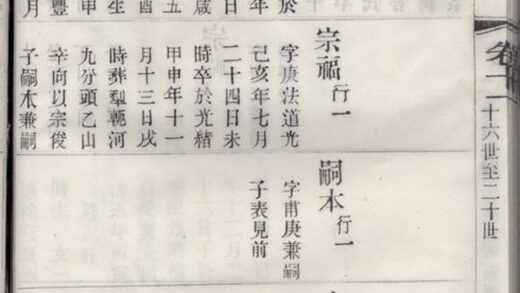 卷二
十六世至二十世
宗福行一
字庚法道光
己亥年七月
二十四日未
時卒於光緒
甲申年十一
月十三日戌
時葬犁軛河
九分頭乙山
辛向以宗俊
子嗣本兼嗣
嗣本行一
字甫庚兼嗣
子表見前